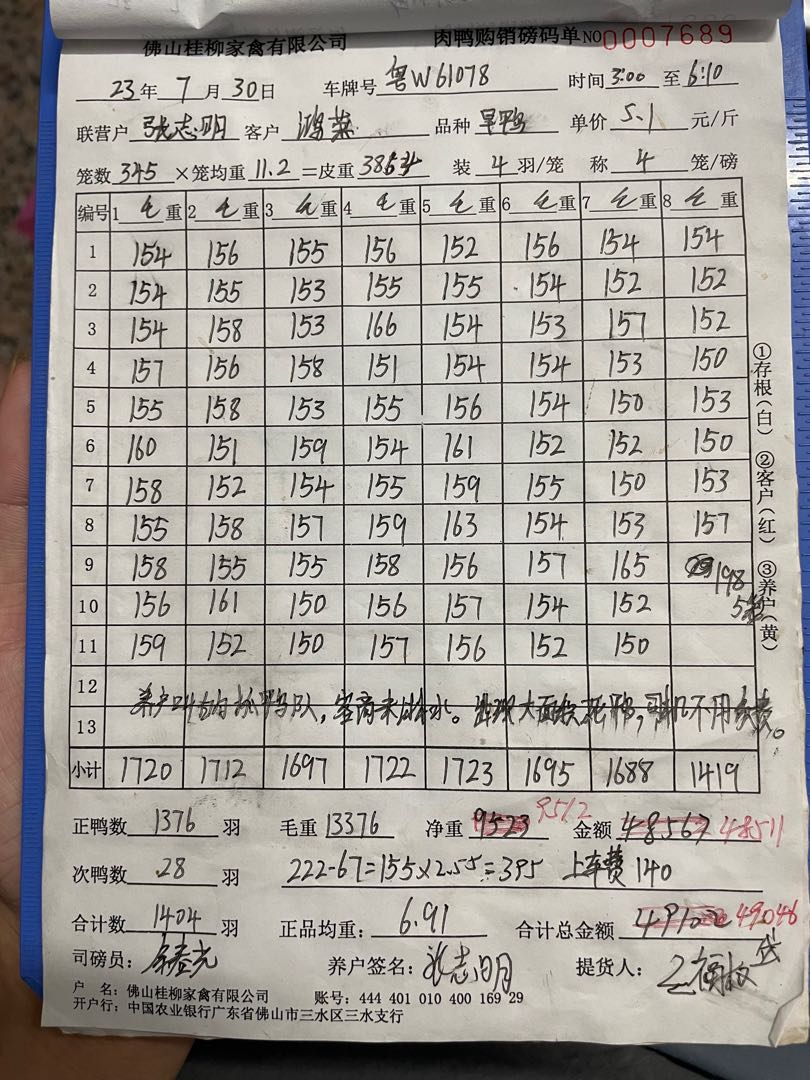 佛山桂柳家禽有限公司 肉鸭购销磅码单 NO 0007689
23年 7月 30日 车牌号 粤W61078 时间 3:00 至 6:10
联营户 张志明 客户 鸿 品种 旱鸭 单价 5.1 元/斤
笼数 345 ×笼均重 11.2 =皮重 3864 装 4 羽/笼 称 4 笼/磅
编号 1 毛重 2 毛重 3 毛重 4 毛重 5 毛重 6 毛重 7 毛重 8 毛重
1 154 156 155 156 152 156 154 154
2 154 155 153 155 155 154 152 152
3 154 158 153 166 154 153 157 152
4 157 156 158 151 154 154 153 150
5 155 158 153 155 156 154 150 153
6 160 151 159 154 161 152 152 150
7 158 152 154 155 159 155 150 153
8 155 158 157 159 163 154 153 157
9 158 155 155 158 156 157 165 198
10 156 161 150 156 157 154 152 5笼
11 159 152 150 157 156 152 150
12
养户叫的抓鸭队，客商未冲水。出现大面积死鸭，司机不用负责。
13
小计 1720 1712 1697 1722 1723 1695 1688 1419
正鸭数 1376 羽 毛重 13376 净重 9523 9512 金额 48567 48511
次鸭数 28 羽 222-67=155×2.55=395 上车费 140
合计数 1404 羽 正品均重: 6.91 合计总金额 49102 49046
司磅员: 养户签名: 张志明 提货人:
户 名: 佛山桂柳家禽有限公司 账号: 444 401 010 400 169 29
开户行: 中国农业银行广东省佛山市三水区三水支行
①存根(白) ②客户(红) ③养户(黄)